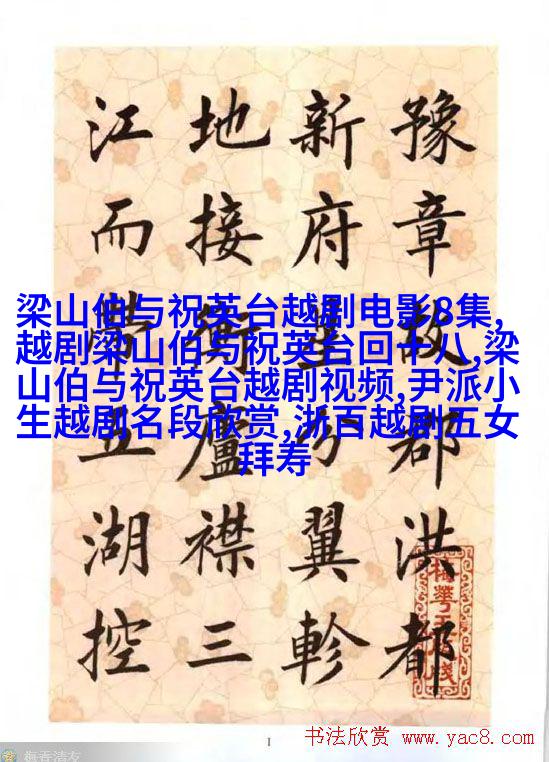 豫章故郡洪都
新府星分翼軫
地接衡廬襟三
江而帶五湖控
梁山伯与祝英台越剧电影8集,
越剧梁山伯与祝英台回十八,梁
山伯与祝英台越剧视频,尹派小
生越剧名段欣赏,浙百越剧五女
拜寿
1
书法欣赏 www.yac8.com